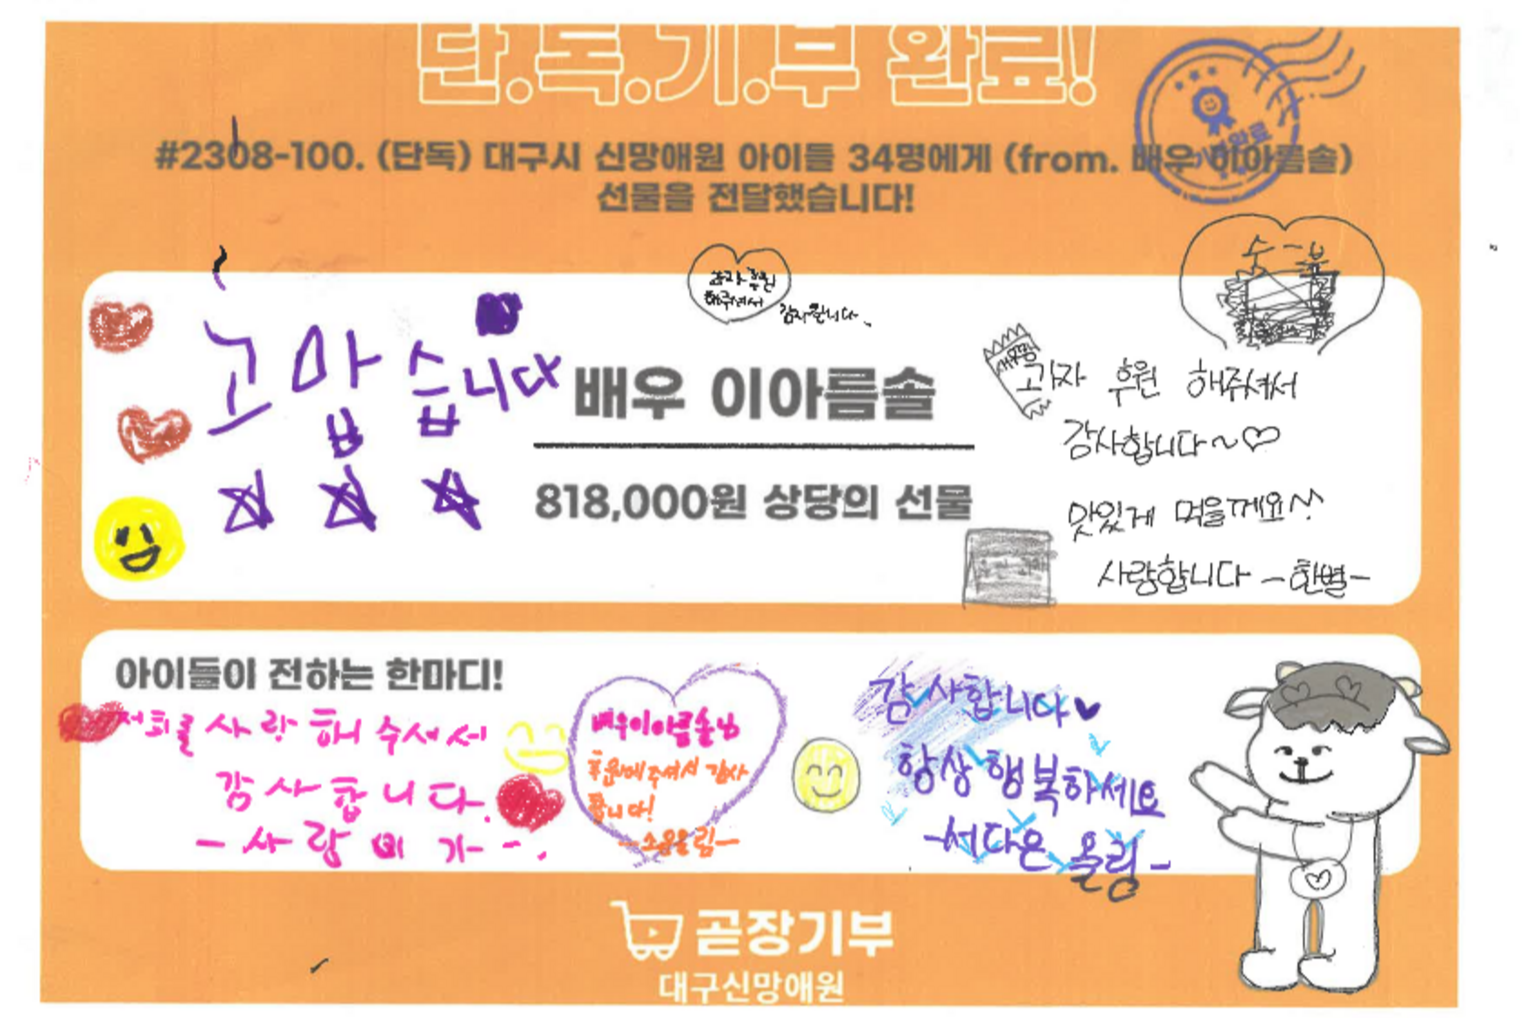 단.독.기.부 완료!
#2308-100. (단독) 대구시 신망애원 아이들 34명에게 (from. 배우 이아름솔)
선물을 전달했습니다!
과자 후원
해주셔서
감사합니다.
고맙습니다
배우 이아름솔
818,000원 상당의 선물
새우깡
과자 후원 해주셔서
감사합니다~♡
맛있게 먹을께요^^
사랑합니다 -한별-
아이들이 전하는 한마디!
저희를 사랑해 주셔서
감사합니다.
배우이아름솔님
후원해주셔서 감사
합니다!
감사합니다
항상 행복하세요
-서다은 올림-
곧장기부
대구신망애원